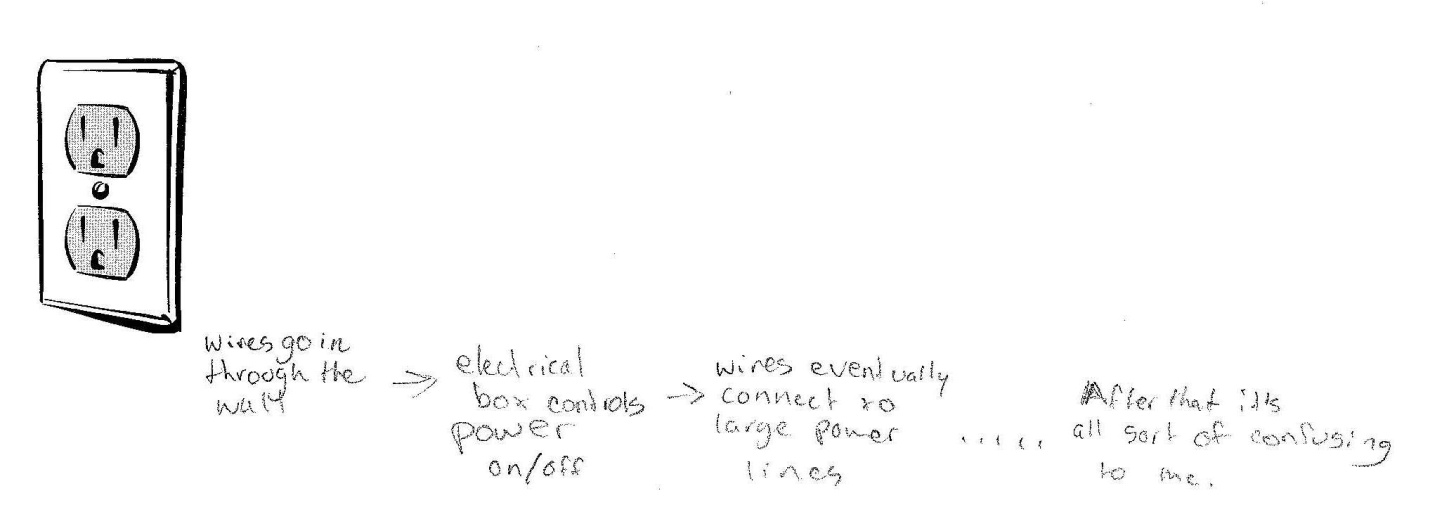 wires go in
through the
wall
→ electrical
box controls
power
on/off
→ wires eventually
connect to
large power
lines
..... After that it's
all sort of confusing
to me.